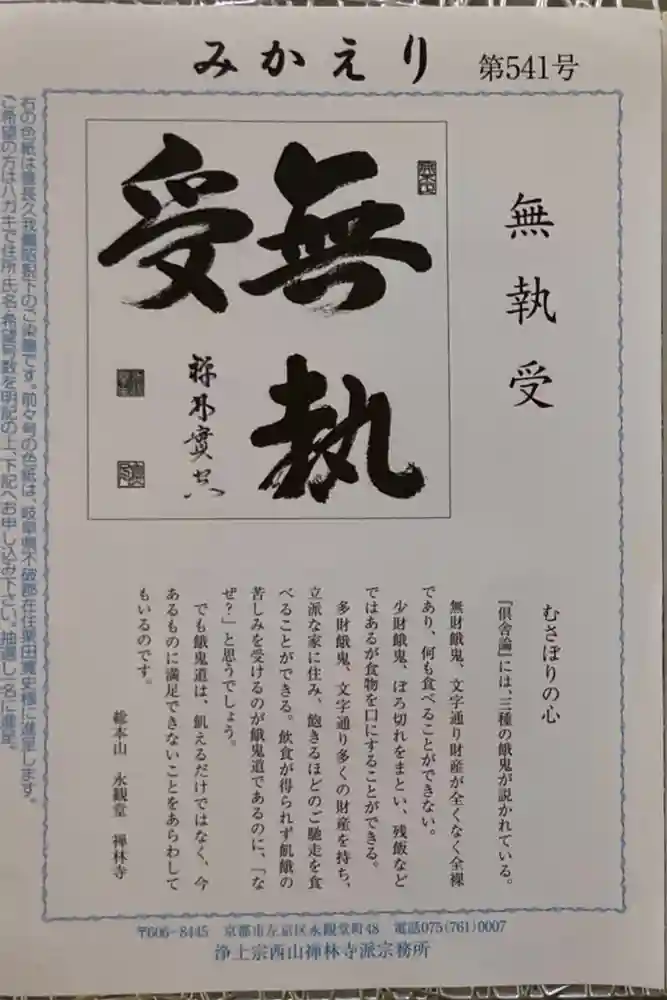 みかえり
第541号
無執受
無
執
受
禅林
むさぼりの心
『倶舎論』には、三種の餓鬼が説かれている。
無財餓鬼、文字通り財産が全くなく全裸
であり、何も食べることができない。
少財餓鬼、ぼろ切れをまとい、残飯など
ではあるが食物を口にすることができる。
多財餓鬼、文字通り多くの財産を持ち、
立派な家に住み、飽きるほどのご馳走を食
べることができる。飲食が得られず飢餓の
苦しみを受けるのが餓鬼道であるのに、「な
ぜ?」と思うでしょう。
でも餓鬼道は、飢えるだけではなく、今
あるものに満足できないことをあらわして
もいるのです。
総本山 永観堂 禅林寺
右の色紙は
長久我
猊下のご染筆です。前々号の色紙は、岐阜県不破郡在住栗田
史様に進呈します。
ご希望の方はハガキで住所・氏名・希望号数を明記の上、下記へお申し込み下さい。抽選し一名に進呈。
〒606-8445 京都市左京区永観堂町48 電話075(761)0007
浄土宗西山禅林寺派宗務所